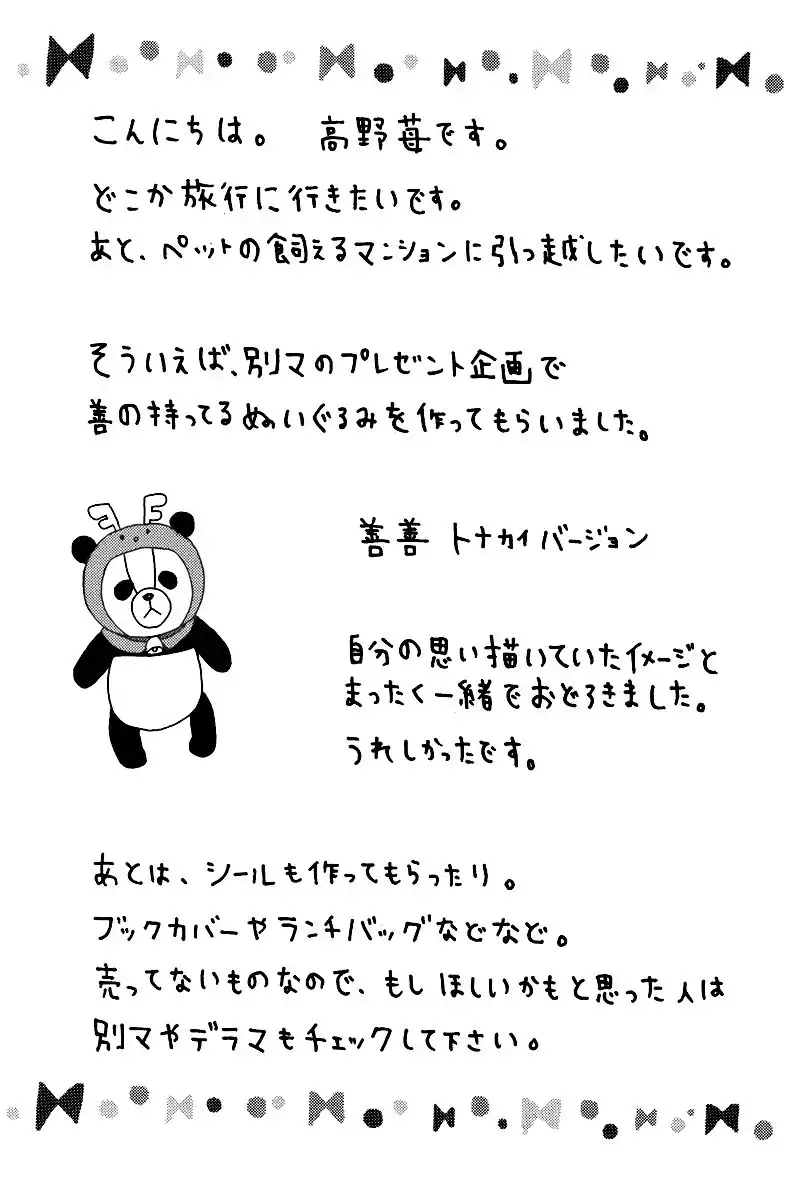 こんにちは。 高野苺です。
どこか旅行に行きたいです。
あと、ペットの飼えるマンションに引っ越したいです。
そういえば、別マのプレゼント企画で
善の持ってるぬいぐるみを作ってもらいました。
善善 トナカイバージョン
自分の思い描いていたイメージと
まったく一緒でおどろきました。
うれしかったです。
あとは、シールも作ってもらったり。
ブックカバーやランチバッグなどなど。
売ってないものなので、もしほしいかもと思った人は
別マやデラマもチェックして下さい。